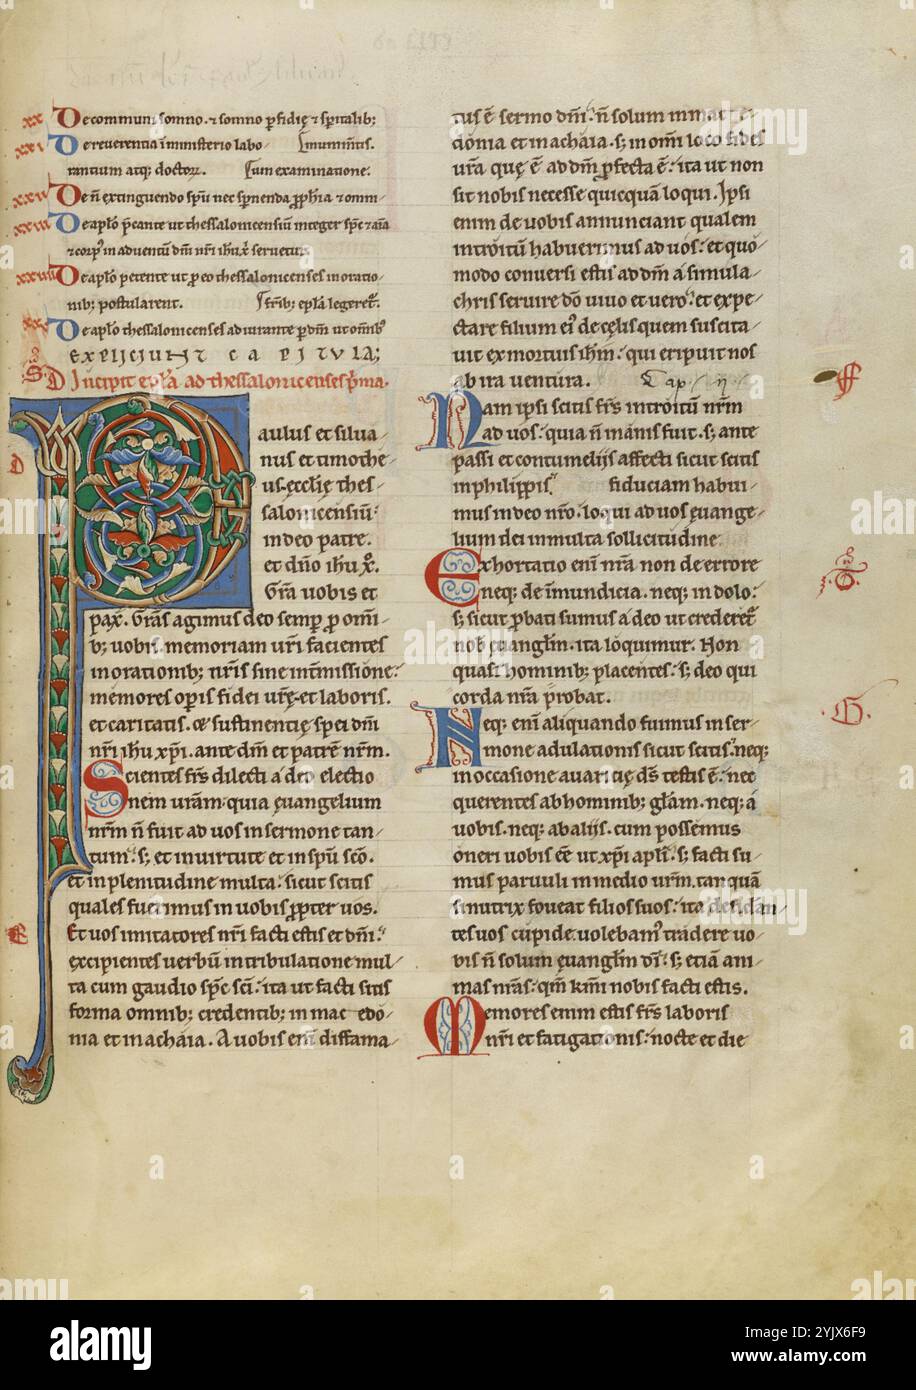 xx De communi somno. ⁊ somno ꝑfidię ⁊ spiritalib;
De reverentia in ministerio labo-
rantium atq; doctoꝝ. cum examinatione. [munimtis.
De ñ extinguendo spũ nec spnenda ꝓphia ⁊ omni-
De aplõ p̃cante ut thessalonicensiũ integer spc̃ ⁊ aia
⁊ corpꝰ in adventũ dm̃ nr̃i ihu xp̃i servetur.
De aplõ petente ut ꝓ eo thessalonicenses in oratio-
nib; postularent. frĩb; epl̃a legeret᷑.
De aplõ thessalonicenses adiurante ꝑ dm̃ ut omibꝰ
EXPLICIUNT CAPITULA;
Incipit epl̃a ad thessalonicenses p̃ma.
Paulus et silua-
nus et timothe-
us. ęcclię thes-
salonicensiũ:
in deo patre.
et dño ihũ xp̃o.
Gr̃a uobis et
pax. Gr̃as agimus deo semp ꝓ om̃i-
b; uobis. memoriam ur̃i facientes
in orationib; nr̃is sine int̃missione.
memores opis fidei ur̃ę. et laboris.
et caritatis. & sustinentię spei dm̃i
nr̃i ihu xp̃i. ante dm̃ et patrẽ nr̃m.
Scientes fr̃s dilecti a deo electio-
nem ur̃am. quia ęuangelium
nr̃m ñ fuit ad uos in sermone tan-
tum. s; et in uirtute et in spũ sc̃o.
et in plenitudine multa. sicut scitis
quales fuerimus in uobis ꝓpter uos.
Et uos imitatores nr̃i facti estis et dm̃i.
excipientes uerbũ in tribulatione mul-
ta cum gaudio spc̃ sc̃i. ita ut facti sitis
forma omnib; credentib; in mac edo-
nia et in achaia. A uobis em̃ diffama-
tus ẽ sermo dm̃i. ñ solum in mac e-
donia et in achaia. s; in om̃i loco fides
ur̃a quę ẽ ad dm̃ ꝓfecta ẽ. ita ut non
sit nobis necesse quicquã loqui. Ipsi
enim de uobis annunciant qualem
introitũ habuerimus ad uos. et quo-
modo conuersi estis ad dm̃ a simula-
chris seruire do uiuo et uero. et expe-
ctare filium eiꝰ de cęlis quem suscita-
uit ex mortuis ihm̃. qui eripuit nos
ab ira ventura. Cap. II.
Nam ipsi scitis fr̃s introitũ nr̃m
ad uos. quia ñ inanis fuit. s; ante
passi et contumeliis affecti sicut scitis
in philippis. fiduciam habui-
mus in deo nr̃o. loqui ad uos ęuange-
lium dei in multa sollicitudine.
Exhortatio em̃ nr̃a non de errore
neq; de inmundicia. neq; in dolo.
s; sicut ꝓbati sumus a deo ut crederet᷑
nob̃ ęuangl̃m. ita loquimur. Non
quasi hominib; placentes. s; deo qui
corda nr̃a ꝓbat.
Neq; em̃ aliquando fuimus in ser-
mone adulationis sicut scitis. neq;
in occasione auaricię ds̃ testis ẽ. nec
querentes ab hominib; gl̃am. neq; a
uobis. neq; ab aliis. cum possemus
oneri uobis eẽ ut xp̃i apl̃i. s; facti su-
mus paruuli in medio ur̃m. tanquã
si nutrix foueat filios suos. ita desidan-
tes uos cupide uolebamꝰ tradere uo-
bis ñ solum ęuangl̃m di. s; etiã ani-
mas nr̃as. qm̃ km̃i nobis facti estis.
Memores enim estis fr̃s laboris
nr̃i et fatigationis. nocte et die
alamy
2YJX6F9
www.alamy.com